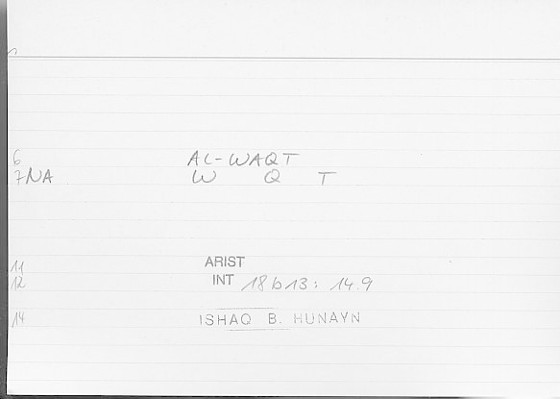 6 AL-WAQT
7NA W Q T
11 ARIST
12 INT 18b13: 14.9
14 ISHAQ B. HUNAYN